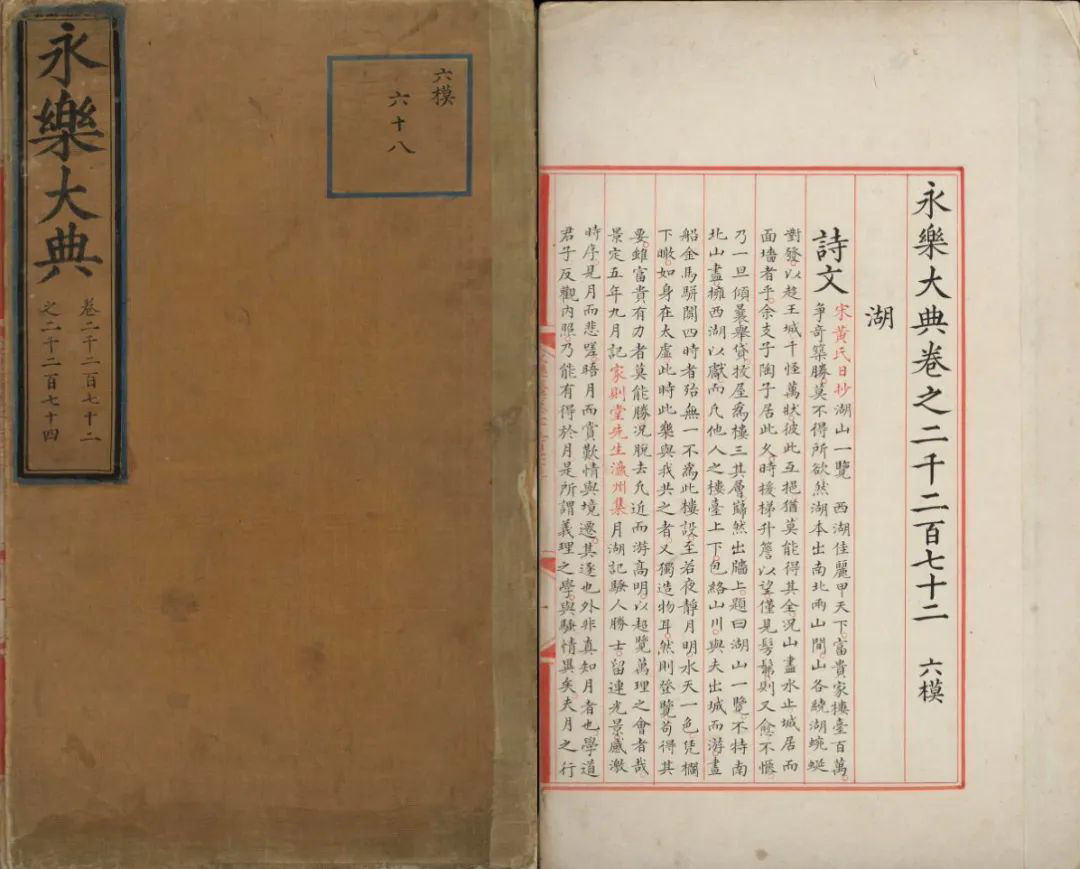 永樂大典
卷二千二百七十二
之二千二百七十四
六模
六十八
永樂大典卷之二千二百七十二 六模
湖
詩文
宋黄氏日抄湖山一覽 西湖佳麗甲天下富貴家樓臺百萬
爭奇築勝莫不得所欲然湖本出南北兩山間山各繞湖蜿蜒
對發以趍王城千怪萬狀彼此互挹猶莫能得其全況山盡水止城居而
面墻者乎余支子陶子居此久時援梯升簷以望僅見髣髴則又愈不愜
乃一旦傾囊舉貸拔屋為樓三其層巋然出牆上題曰湖山一覽不特南
北山盡擁西湖以獻而凡他人之樓臺上下包絡山川與夫出城而游畫
船金馬駢闐四時者殆無一不為此樓設至若夜靜月明水天一色凭欄
下瞰如身在太虛此時此樂與我共之者又獨造物耳然則登覽苟得其
要雖富貴有力者莫能勝況脫去凡近而游高明以超覽萬理之會者哉
景定五年九月記家則堂先生瀛州集月湖記騷人勝士留連光景感激
時序見月而悲嗟晤月而賞歎情與境遷其達也外非真知月者也學道
君子反觀内照乃能有得於月是所謂義理之學與騷情異矣夫月之行